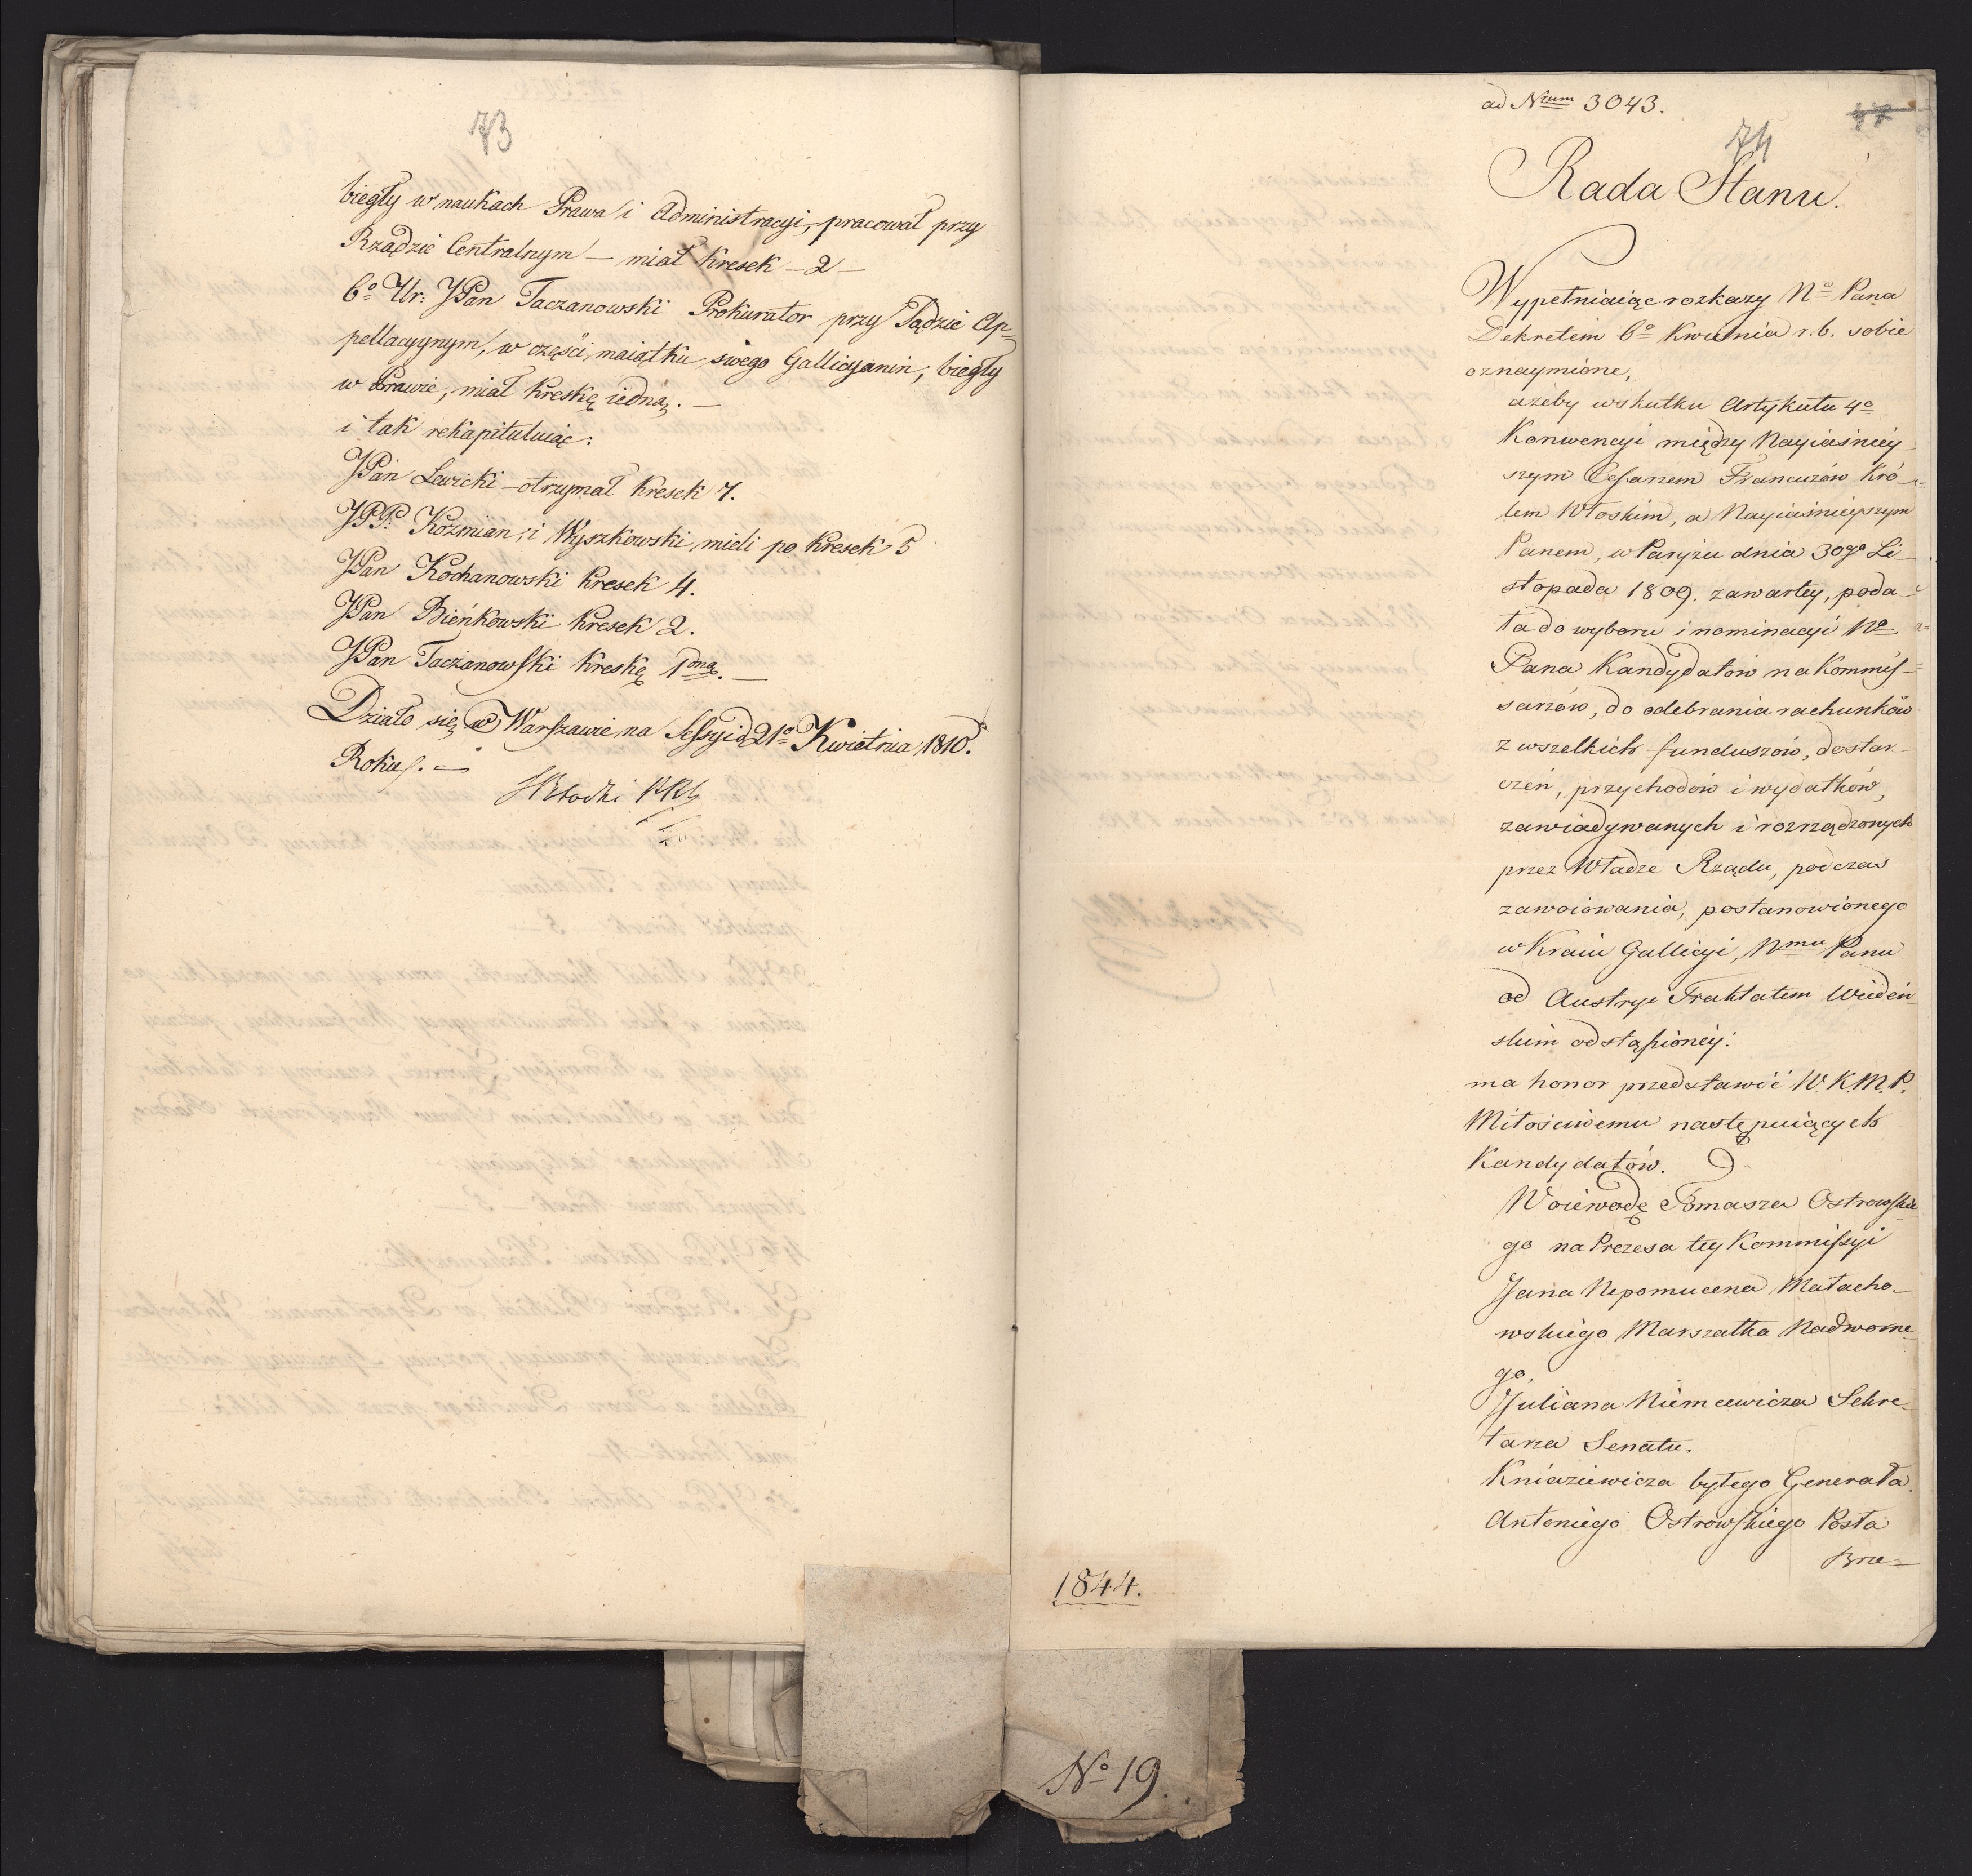 73
biegły w naukach Prawa i Administracyi, pracował przy
Rządzie Centralnym — miał kresek — 2 —
6º Ur: JPan Taczanowski Prokurator przy Sądzie Ap-
pellacyynym, w części maiątku swego Gallicyanin, biegły
w Prawie, miał kreskę iedną. —
i tak rekapituluiąc:
JPan Lewicki — otrzymał kresek 7.
JPP: Koźmian, i Wyszkowski mieli po kresek 5
JPan Kochanowski kresek 4.
JPan Bieńkowski kresek 2.
JPan Taczanowski kreskę 1dną. —
Działo się w Warszawie na Sessyi d 21º Kwietnia 1810.
Roku. —
ad Nrum 3043.
47
74
Rada Stanu.
Wypełniaiąc rozkazy Nº Pana
Dekretem 6º Kwietnia r. b. sobie
oznaymione,
ażeby wskutku Artykułu 4º
Konwencyi między Nayiaśniey-
szym Cesarzem Francuzów Kró-
lem Włoskim, a Nayiaśnieyszym
Panem, w Paryżu dnia 30go Li-
stopada 1809. zawartey, poda-
ła do wyboru i nominacyi Nº
Pana Kandydatów na Kommis-
sarzów, do odebrania rachunków
z wszelkich funduszów, dostar-
czeń, przychodów i wydatków,
zawiadywanych i rozrządzonych
przez Władze Rządu, podczas
zawoiowania, postanowionego
w Kraiu Gallicyi, Nmu Panu
od Austryi Traktatem Wiedeń-
skim odstąpioney:
ma honor przedstawić W. K. M. P.
Miłościwemu następuiących
Kandydatów.
Woiewodę Tomasza Ostrowskie-
go na Prezesa tey Kommissyi
Jana Nepomucena Małacho-
wskiego Marszałka Nadworne-
go,
Juliana Niemcewicza Sekre-
tarza Senatu.
Kniaziewicza byłego Generała.
Antoniego Ostrowskiego Posła
Brze-
1844.
Nº 19.